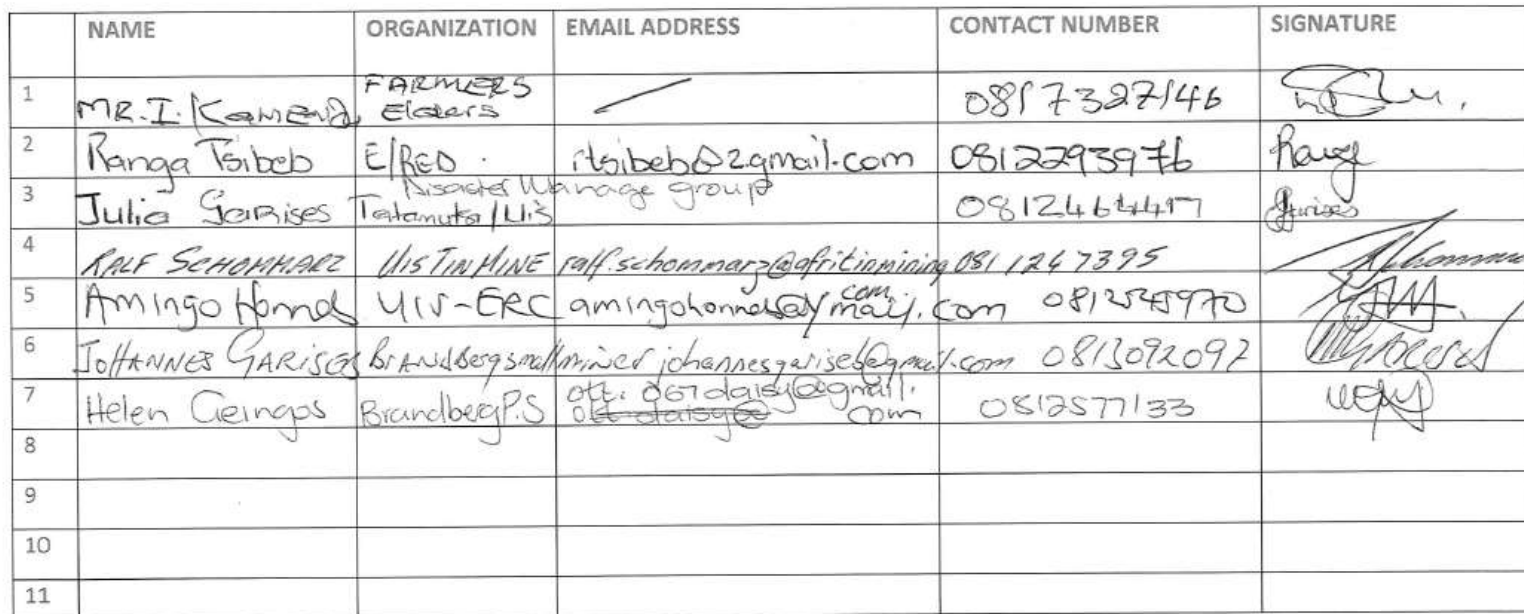 NAME ORGANIZATION EMAIL ADDRESS CONTACT NUMBER SIGNATURE
1 MR. I. FARMERS Elders / 0817327146
2 Ranga Tsibeb E/RED. rtsibeb@2gmail.com 0812293976 Range
Disaster Manage group
3 Julia Garises Tatamutsi/Uis Garises
4 RALF SCHOMMARZ UIS TIN MINE ralf.schommarz@afritinmining 081 1247395
com.
5 Amingo UIS-ERC mail.com
6 JOHANNES GARISES BRANDBergsmallminer johannesgariseb@gmail.com 0813092092
7 Helen Geingos Brandberg P.S ott.061daisy@gmail.
com 0812577133
8
9
10
11